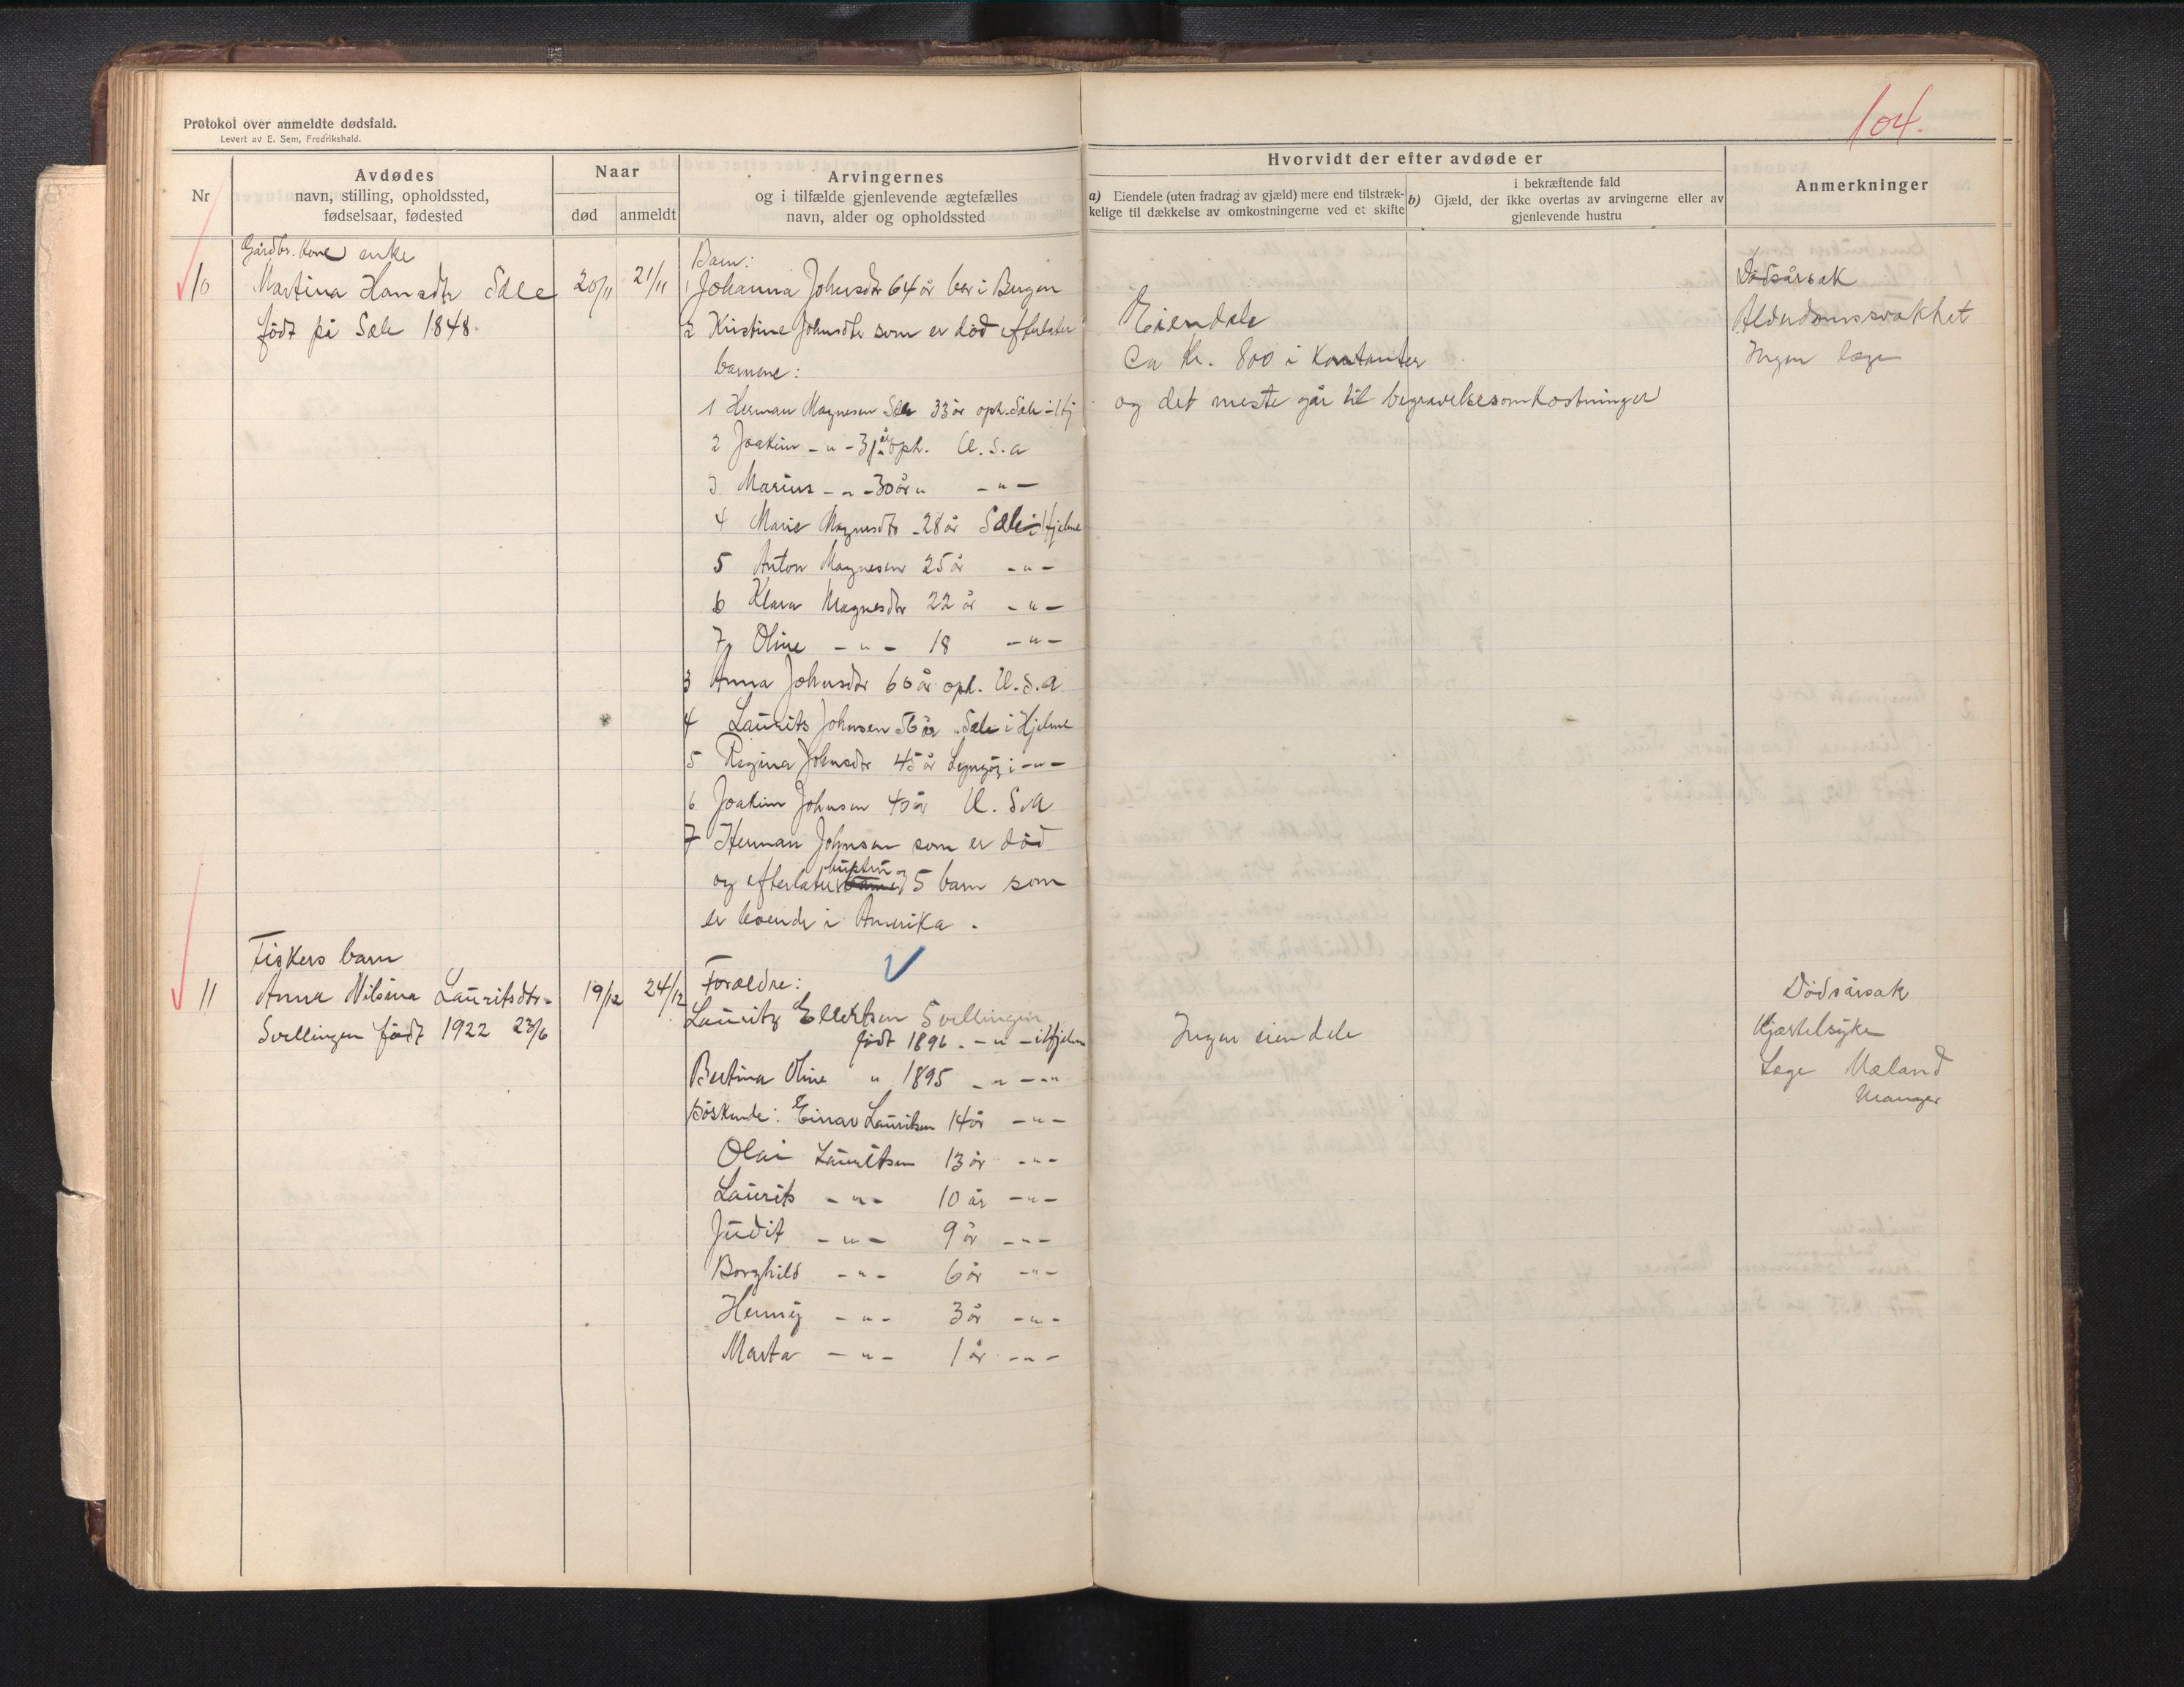 104.
Protokol over anmeldte dødsfald.
Levert av E. Sem, Fredrikshald.
Nr
Avdødes
navn, stilling, opholdssted,
fødselsaar, fødested
Naar
død
anmeldt
Arvingernes
og i tilfælde gjenlevende ægtefælles
navn, alder og opholdssted
Hvorvidt der efter avdøde er
a) Eiendele (uten fradrag av gjæld) mere end tilstræk-
kelige til dækkelse av omkostningerne ved et skifte
i bekræftende fald
b) Gjæld, der ikke overtas av arvingerne eller av
gjenlevende hustru
Anmerkninger
10
Gårdbr. kone enke
Martina Hansdtr Sæle
født på Sæle 1848.
20/11
21/11
Barn:
1 Johanna Johnsdtr 64 år bor i Bergen
2 Kristine Johnsdtr som er død efterlater
barnene:
1 Herman Magnesen Sæle 33 år oph. Sæle i Hj
2 Joakim -"- 31 år oph. U.S.a
3 Marius -"- 30 år " -"-
4 Marie Magnesdtr 28 år Sæle i Hjelme
5 Anton Magnesen 25 år -"-
6 Klara Magnesdtr 22 år -"-
7 Oline -"- 18 -"-
3 Anna Johnsdtr 60 år oph. U.S.a
4 Laurits Johnsen 56 år Sæle i Hjelme
5 Regina Johnsdtr 45 år Lyngøy i -"-
6 Joakim Johnsen 40 år U.S.A
7 Herman Johnsen som er død
og efterlater hustru og 5 barn som
er boende i Amerika.
Eiendele
Ca kr. 800 i kontanter
og det meste går til begravelsesomkostninger
Dødsårsak
Alderdomssvakhet
Ingen læge
11
Fiskers barn
Anna Nilsina Lauritsdtr
Svellingen født 1922 23/6
19/12
24/12
Forældre:
Lauritz Ellertsen Svellingen
født 1896. -"- i Hjelme
Bertina Oline " 1895 -"- -"-
Søskende: Einar Lauritsen 14 år -"-
Olai Lauritsen 13 år -"-
Laurits -"- 10 år -"-
Judit -"- 9 år -"-
Borghild -"- 6 år -"-
Henny -"- 3 år -"-
Marta -"- 1 år -"-
Ingen eiendele
Dødsårsak
Kjertelsyke
Læge Mæland
Manger